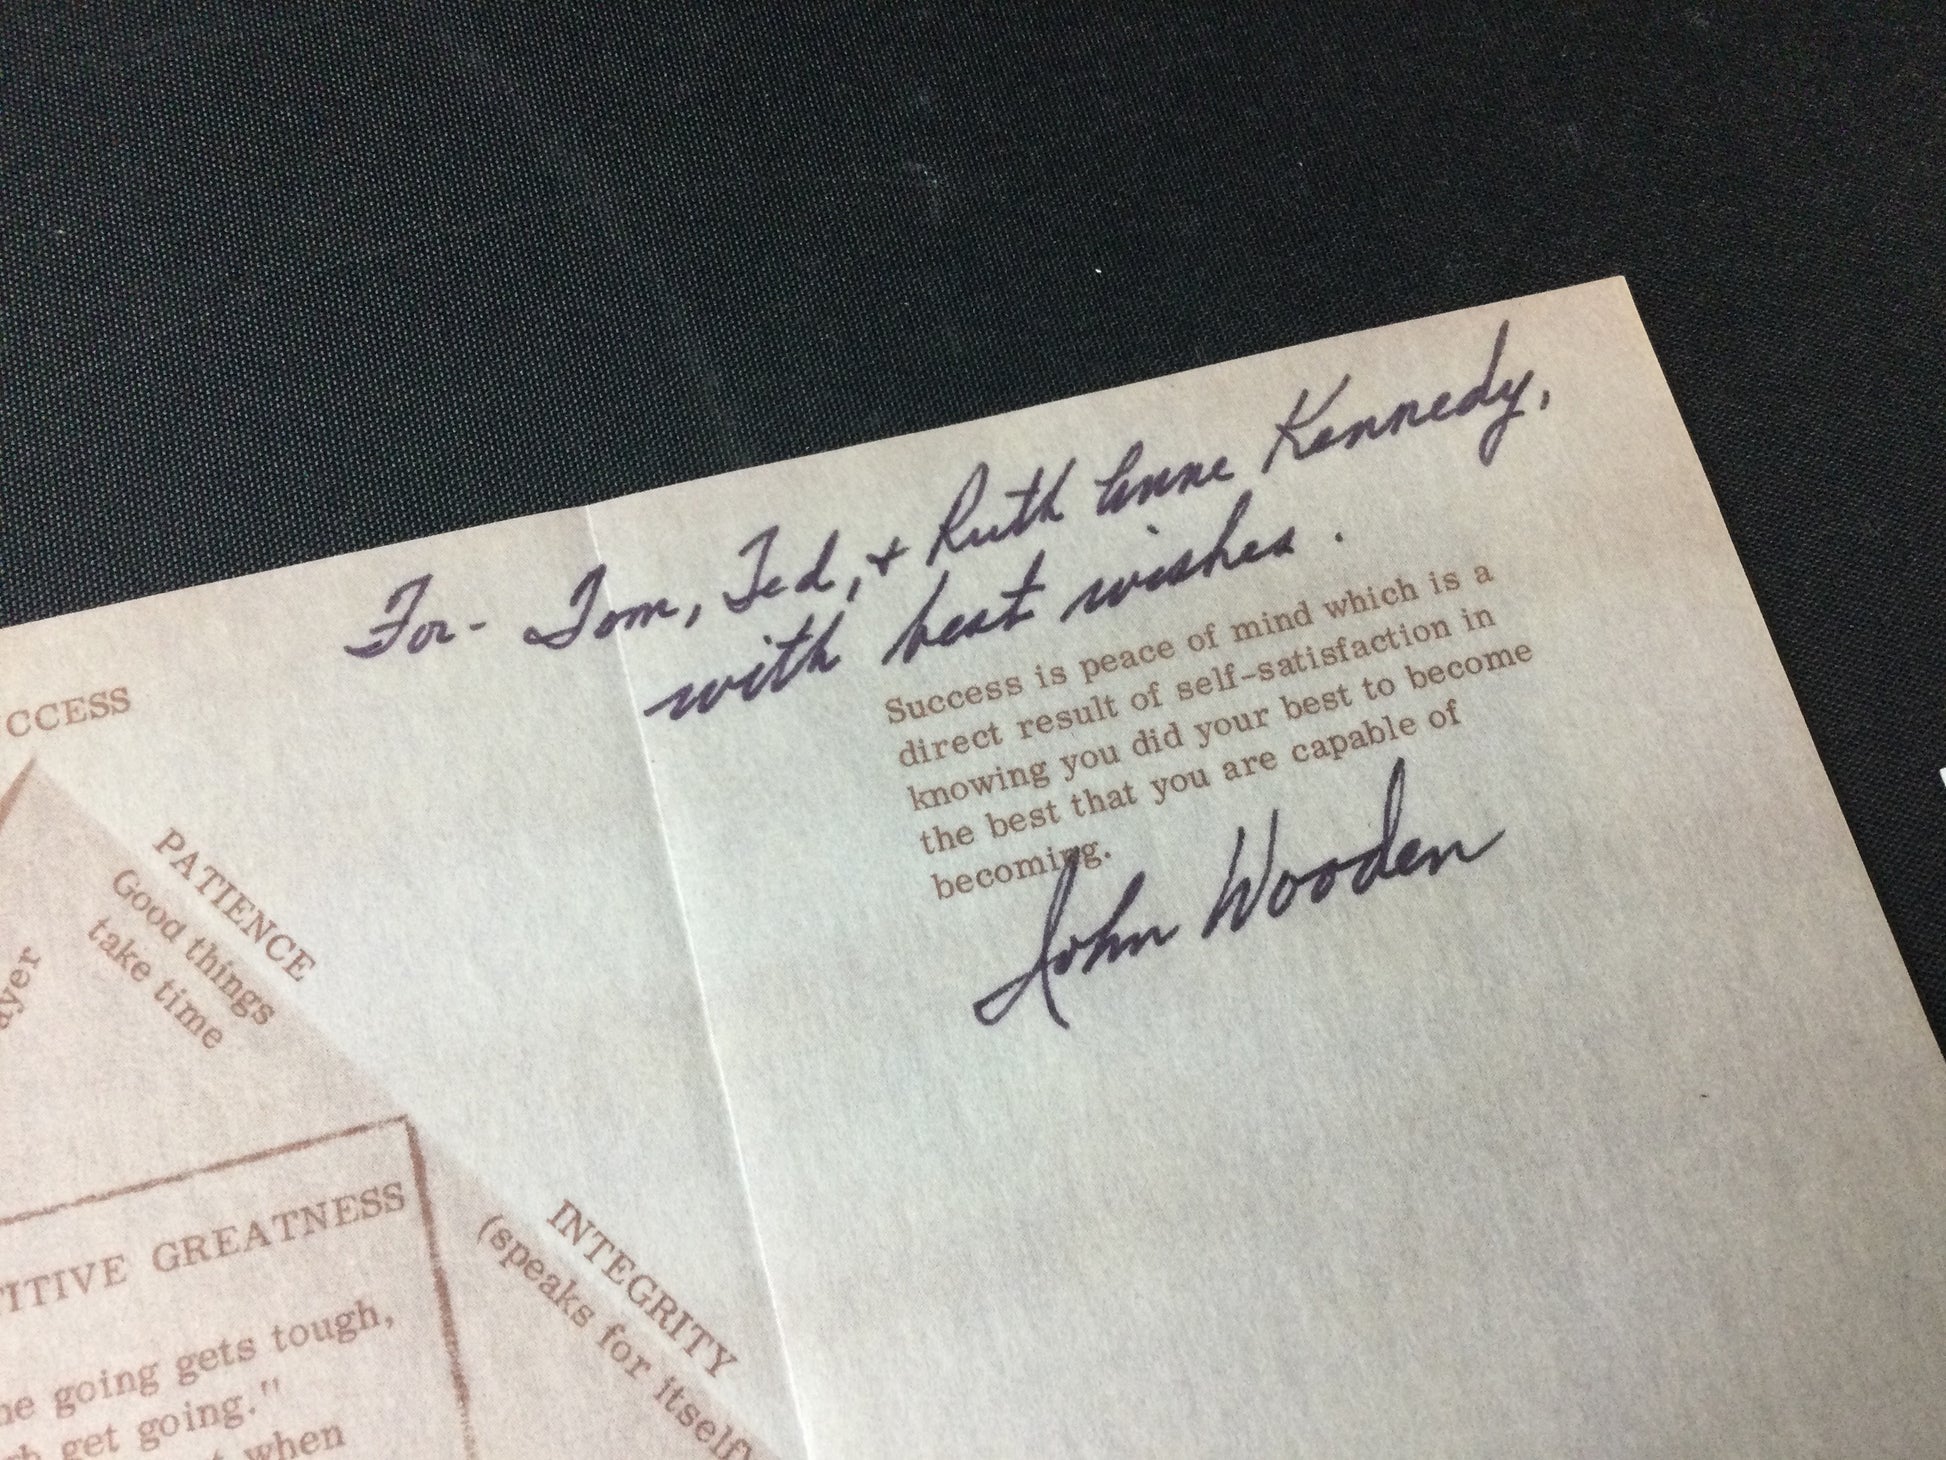 For- Tom, Ted, + Ruth Anne Kennedy,
with best wishes.
Success is peace of mind which is a
direct result of self-satisfaction in
knowing you did your best to become
the best that you are capable of
becoming.
John Wooden
CCESS
PATIENCE
Good things
take time
ayer
TITIVE GREATNESS
he going gets tough,
get going."
when
INTEGRITY
(speaks for itself)